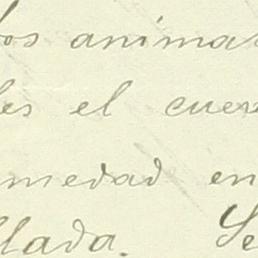 los animas
les el cuer
medad en
llada. Se